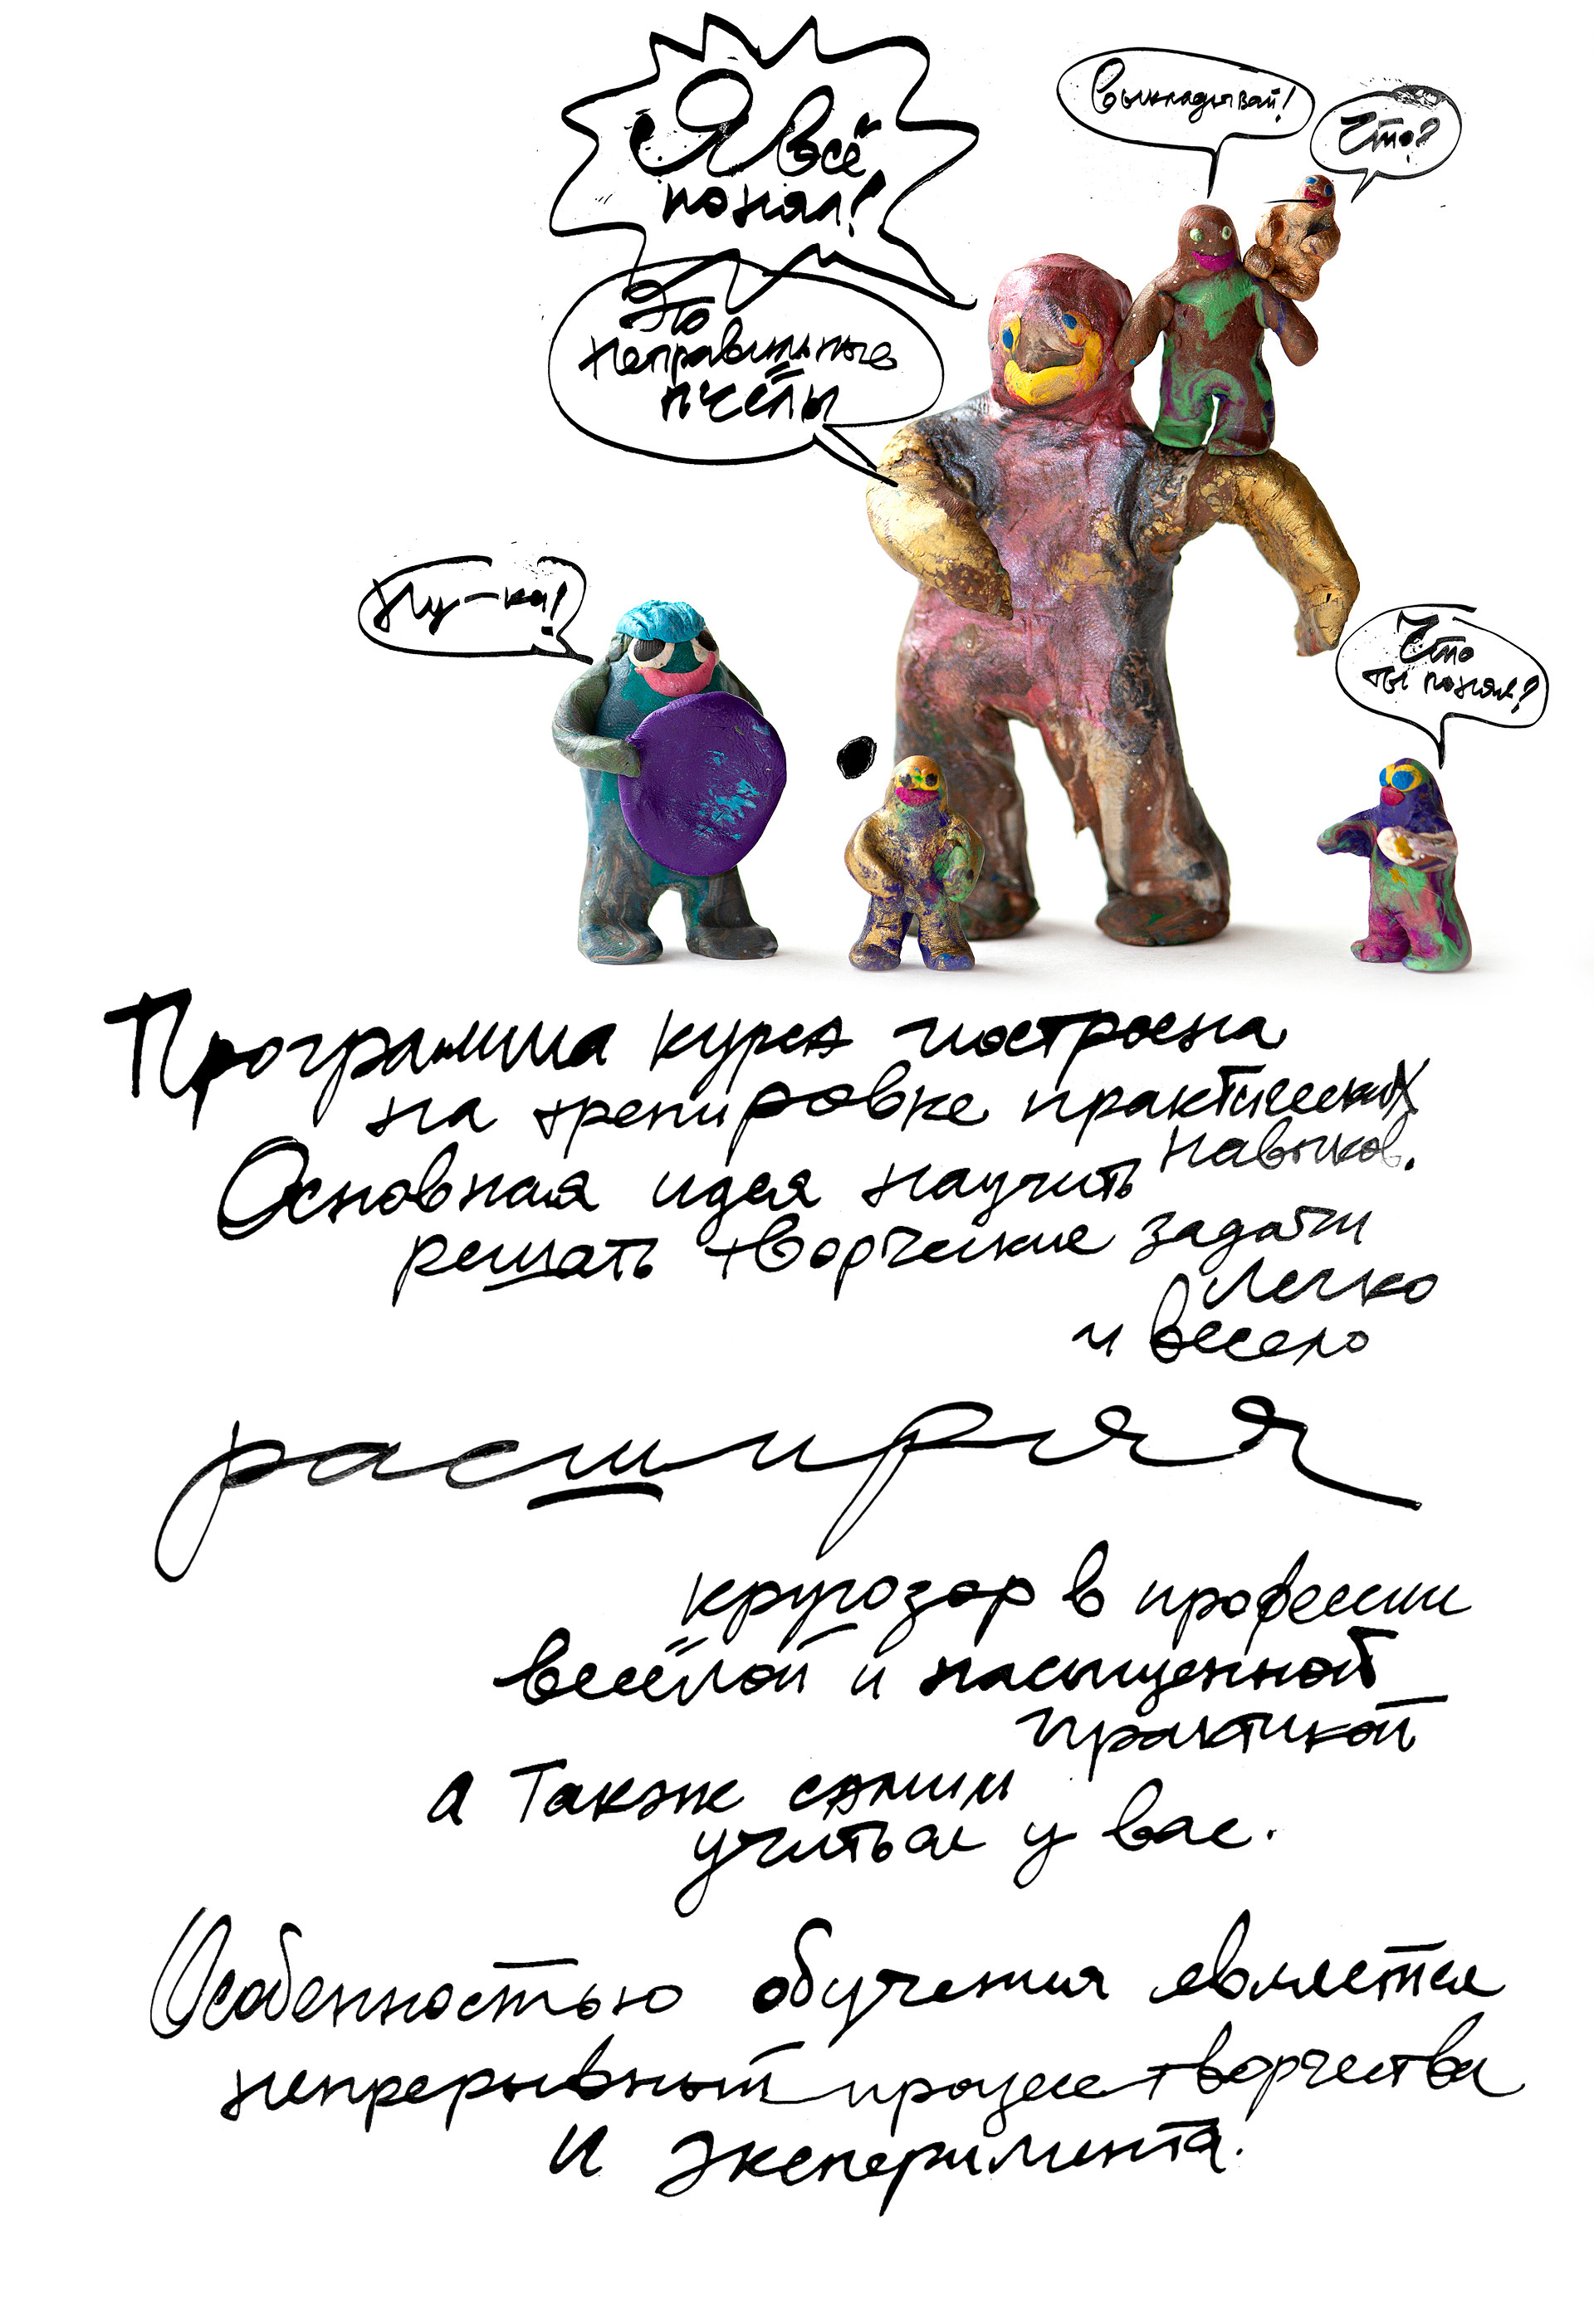 Я всё
понял!
Выкладывай!
Что?
Это
неправильные
пчёлы
Ну-ка!
Что
ты понял?
Программа курса построена
на тренировке практических
навыков.
Основная идея научить
решать творческие задачи
легко
и весело
расширяя
кругозор в профессии
весёлой и насыщенной
практикой
а также самим
учиться у вас.
Особенностью обучения является
непрерывный процесс творчества
и эксперимента.